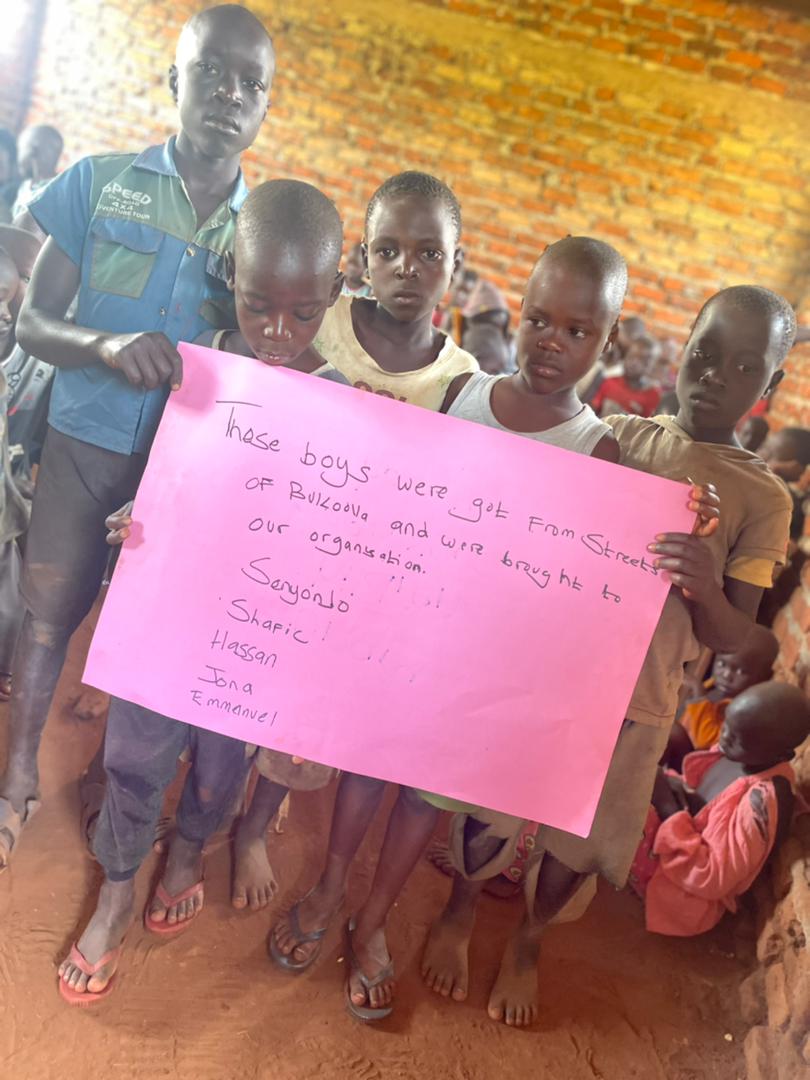 SPEED
4X4
VENTURE TOUR
These boys were got From Streets
OF and were brought to
our organisation.
Senyondo
Shafic
Hassan
Jona
Emmanuel